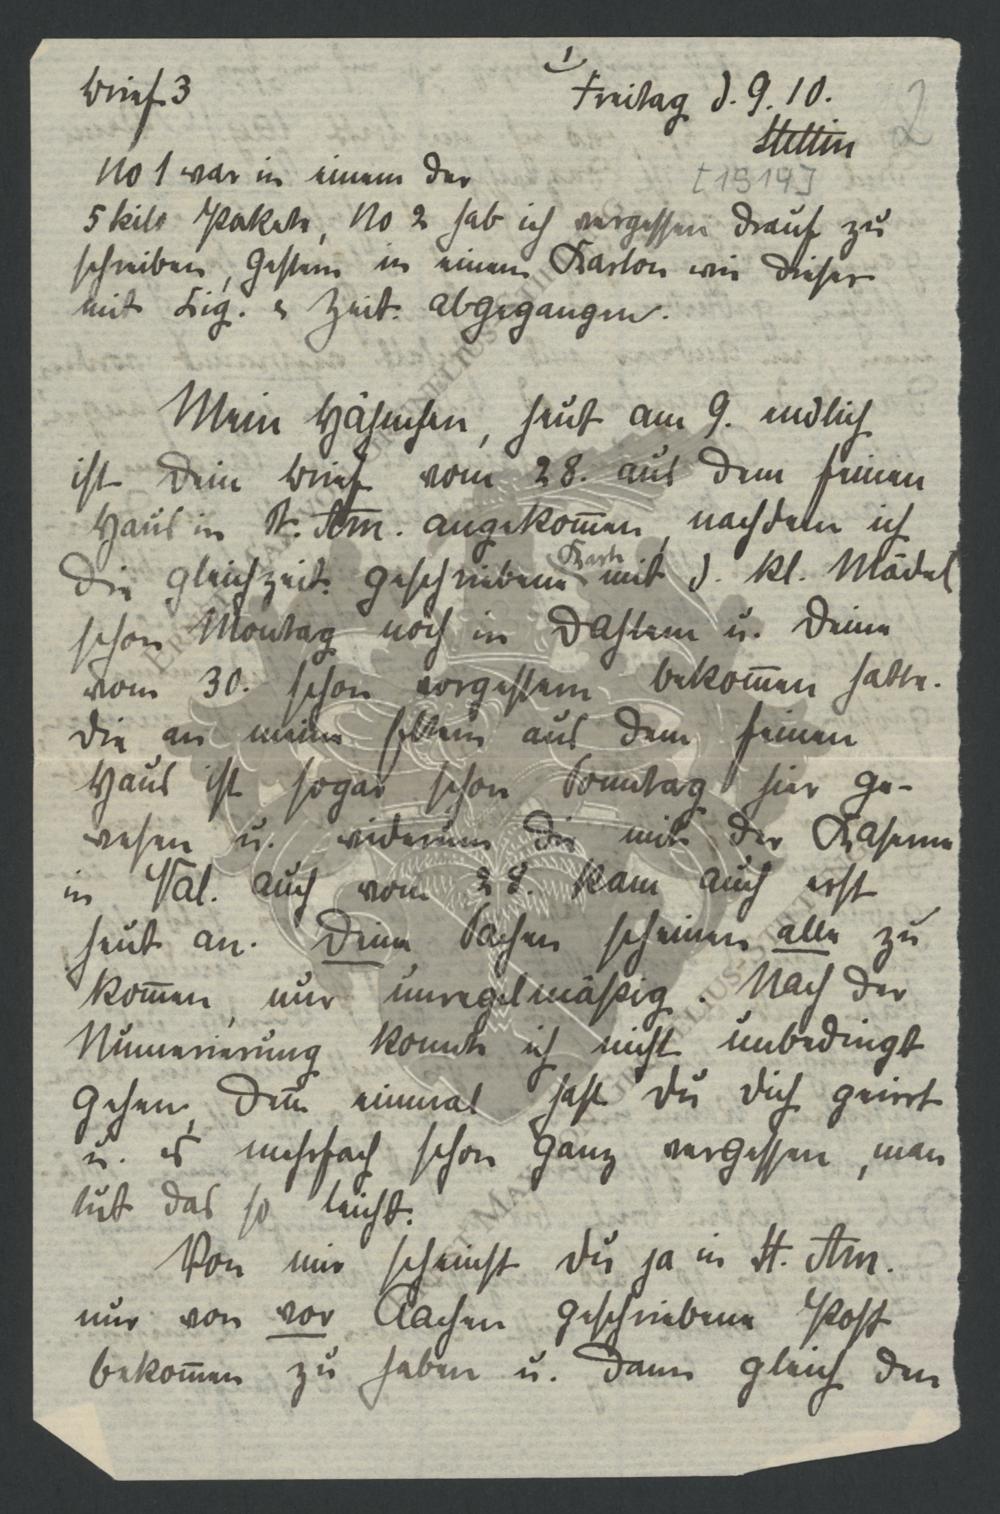 1
Brief 3 Freitag d. 9. 10. 2
Stettin
No 1 war in einem der [1914]
5 kilo Pakete, No 2 hab ich vergessen drauf zu
schreiben, gestern in einem Karton wie dieser
mit Zig. u Zeit. abgegangen.
Mein Hähnchen, heut am 9. endlich
ist Dein Brief vom 28. aus dem feinen
Haus in St. Am. angekom̅en, nachdem ich
Karte
die gleichzeit. geschriebene mit d. kl. Mädel
schon Montag noch in Dahlem u. Deine
vom 30. schon vorgestern bekom̅en hatte.
Die an meine Eltern aus dem feinen
Haus ist sogar schon Sonntag hier ge-
wesen u. wiederum die mit der Kaserne
in Val. auch vom 28. kam auch erst
heut an. Deine Sachen scheinen alle zu
kom̅en, nur unregelmäßig. Nach der
Numerierung konnte ich nicht unbedingt
gehen, den̅ einmal hast Du Dich geirrt
u. es mehrfach schon ganz vergessen, man
tut das so leicht.
Von mir scheinst Du ja in St. Am.
nur von vor Aachen geschriebene Post
bekom̅en zu haben u. dann gleich den